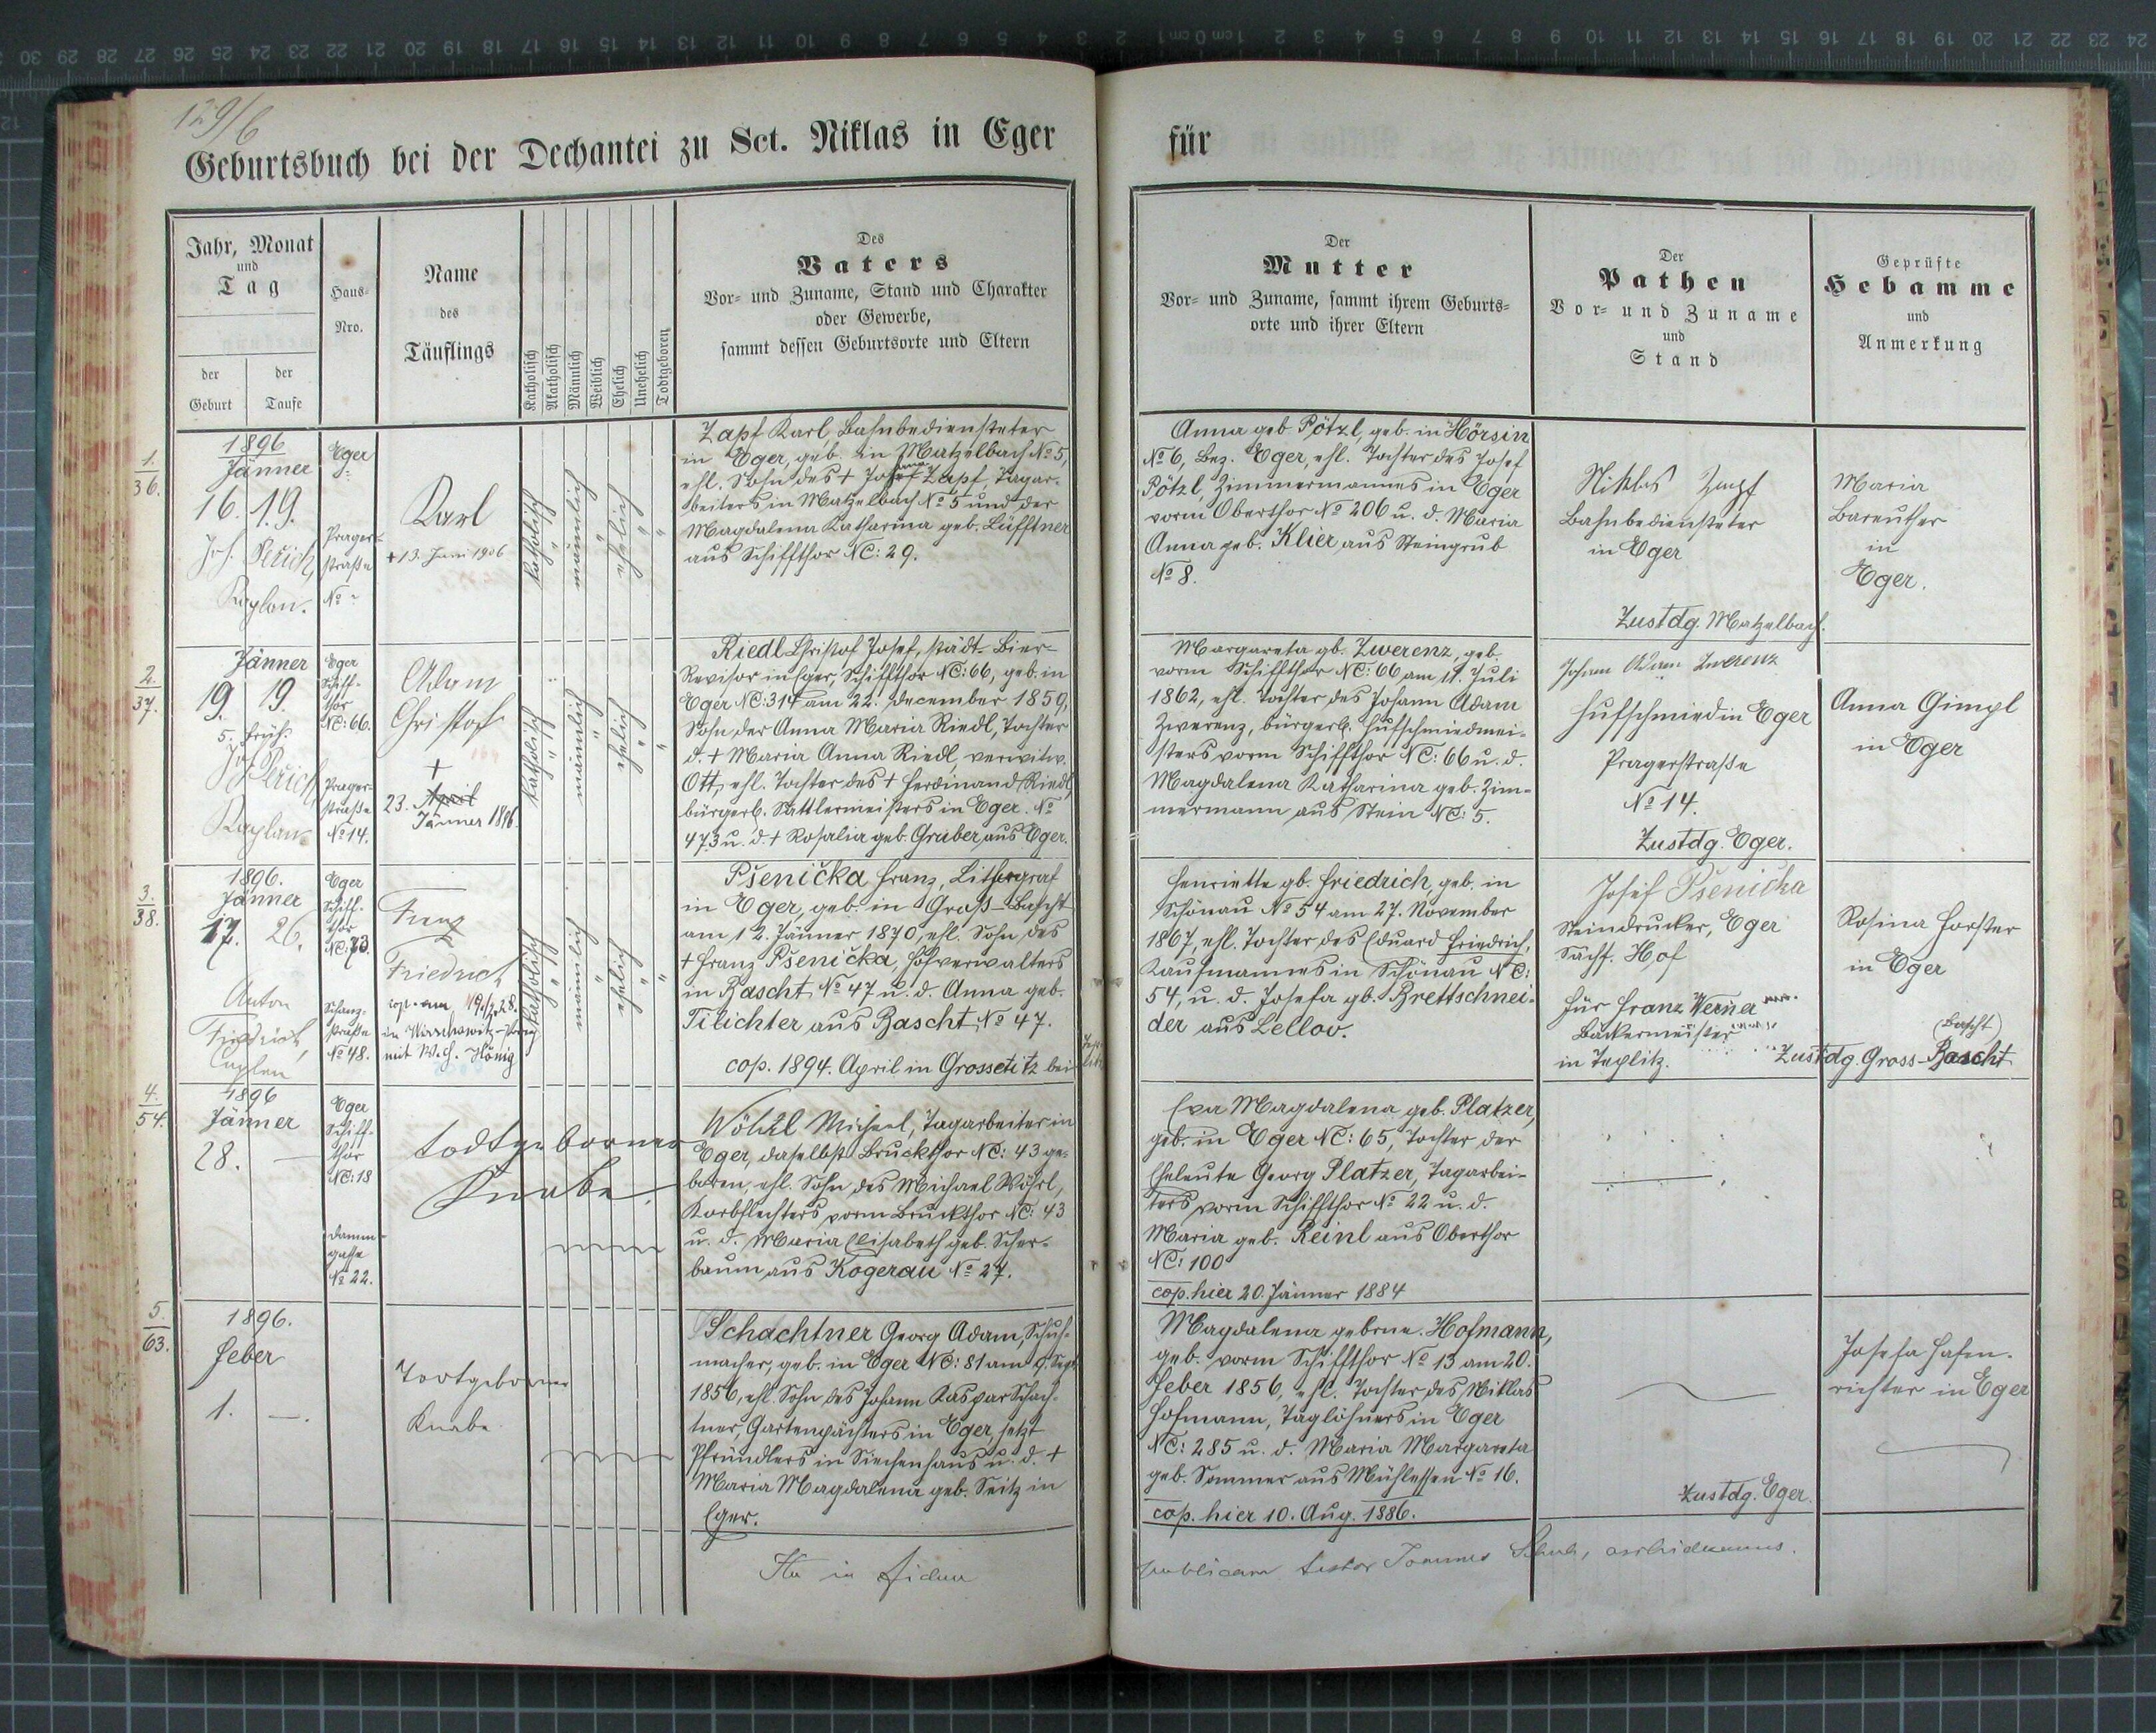 129/6
Geburtsbuch bei der Dechantei zu Sct. Niklas in Eger
für
Jahr, Monat
und
Tag
der
Geburt
der
Taufe
Haus-
Nro.
Name
des
Täuflings
Katholisch
Akatholisch
Männlich
Weiblich
Ehelich
Unehelich
Todtgeboren
Des
Vaters
Vor- und Zuname, Stand und Charakter
oder Gewerbe,
sammt dessen Geburtsorte und Eltern
Der
Mutter
Vor- und Zuname, sammt ihrem Geburts-
orte und ihrer Eltern
Der
Pathen
Vor- und Zuname
und
Stand
Geprüfte
Hebamme
und
Anmerkung
1.
36.
1896
Jänner
16. 19.
Kaplan.
Eger
Prager-
straße
No
Karl
+ 13. Juni 1906
katholisch
männlich
ehelich
Zapf Karl Bahnbediensteter
in Eger, geb. in Matzelbach No 5,
ehl. Sohn des + Zapf, Tagar-
beiters in Matzelbach No 5 und der
Magdalena Katharina geb. Lüfftner
aus Schiffthor NC: 29.
Anna geb Pötzl, geb. in Hörsin
No 6, Bez. Eger, ehl. Tochter des Josef
Pötzl, Zimmermannes in Eger
vorm Oberthor No 206 u. d. Maria
Anna geb. Klier aus Steingrub
No 8.
Niklas Zapf
Bahnbediensteter
in Eger
Zustdg. Matzelbach.
Maria
Bareuther
in
Eger.
2.
37.
Jänner
19. 19.
5. früh.
Kaplan
Eger
Schiff-
thor
NC: 66.
Prager-
straße
No 14.
Adam
Christof
+
23. April
Jänner 1896.
katholisch
männlich
ehelich
Riedl Christof Josef, städt. Bier-
Revisor in Eger, Schiffthor NC: 66, geb. in
Eger NC: 314 am 22. December 1859,
Sohn der Anna Maria Riedl, Tochter
d. + Maria Anna Riedl, verwitw.
Ott, ehl. Tochter des + Ferdinand Riedl
bürgerl. Sattlermeisters in Eger. No
473 u. d. + Rosalia geb. Gruber aus Eger.
Margareta gb. Zwerenz, geb.
vorm Schiffthor NC: 66 am 11. Juli
1862, ehl. Tochter des Johann Adam
Zwerenz, bürgerl. Hufschmiedmei-
sters vorm Schiffthor NC: 66 u. d.
Magdalena Katharina geb. Zim-
mermann aus Stein NC: 5.
Johann Adam Zwerenz
Hufschmied in Eger
Pragerstraße
No 14.
Zustdg. Eger.
Anna Gimpl
in Eger
3.
38.
1896.
Jänner
17. 26.
Anton
Friedrich,
Caplan
Eger
Schiff-
thor
NC: 73.
Schanz-
straße
No 48.
Franz
Friedrich
cop. am
in Wrschowitz-Prag
mit König
katholisch
männlich
ehelich
Pšenička Franz, Lithograf
in Eger, geb. in Groß-Bascht
am 12. Jänner 1870, ehl. Sohn des
+ Franz Pšenička, Hofverwalters
in Bascht No 47 u. d. Anna geb.
Tilichter aus Bascht No 47.
cop. 1894. April in Grossetitz bei
Henriette gb. Friedrich, geb. in
Schönau No 54 am 27. November
1867, ehl. Tochter des Eduard Friedrich,
Kaufmannes in Schönau NC:
54, u. d. Josefa gb. Brettschnei-
der aus Lellov.
Josef Pšenička
Steindrucker, Eger
Sächs. Hof
für Franz Werner
Bäckermeister
in Teplitz.
Rosina Forster
in Eger
(Bascht)
Zustdg. Gross-Bascht
4.
54.
1896
Jänner
28. —
Eger
Schiff-
thor
NC: 18
Damm-
gasse
No 22.
todtgeborner
Knabe.
Wöhrl Michael, Tagarbeiter in
Eger, daselbst Bruckthor NC: 43 ge-
boren, ehl. Sohn des Michael Wöhrl,
Korbflechters vorm Bruckthor NC: 43
u. d. Maria Elisabeth geb. Scher-
baum aus Kogerau No 27.
Eva Magdalena geb. Platzer,
geb. in Eger NC: 65, Tochter der
Eheleute Georg Platzer, Tagarbei-
ters vorm Schiffthor No 22 u. d.
Maria geb. Reinl aus Oberthor
NC: 100
cop. hier 20. Jänner 1884
5.
63.
1896.
Feber
1. —.
Todtgeborner
Knabe
Schachtner Georg Adam, Schuh-
macher, geb. in Eger NC: 81 am 9. Sept.
1856, ehl. Sohn des Johann Kaspar Schach-
tner, Gartenpächters in Eger, jetzt
Pfründlers in Siechenhaus u. d. +
Maria Magdalena geb. Seitz in
Eger.
Magdalena geborne. Hofmann,
geb. vorm Schiffthor No 13 am 20.
Feber 1856, ehl. Tochter des Niklas
Hofmann, Taglöhners in Eger
NC: 285 u. d. Maria Margareta
geb. Sommer aus Mühlessen No 16.
cop. hier 10. Aug. 1886.
Zustdg. Eger.
Josefa Hafen-
richter in Eger
Ita in fidem
publicam testor